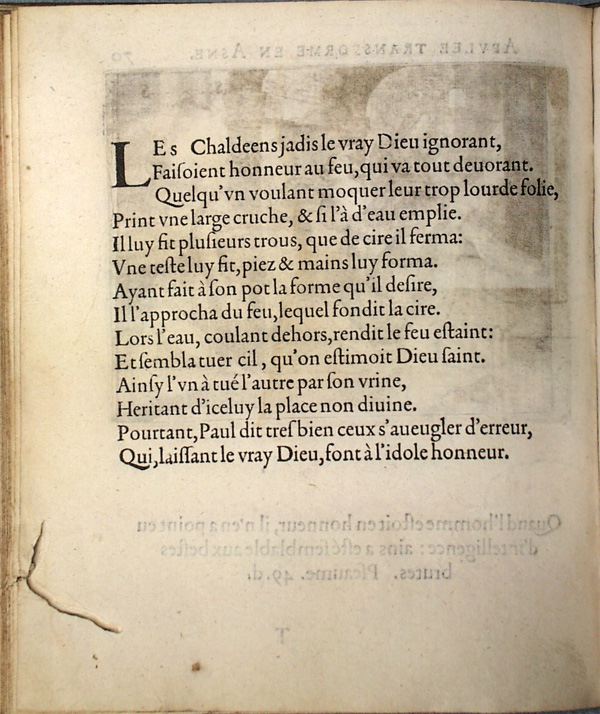 LEs Chaldeens jadis le vray Dieu ignorant,
Faiſoient honneur au feu, qui va tout deuorant.
Quelqu'vn voulant moquer leur trop lourde folie,
Print vne large cruche, & ſi l'à d'eau emplie.
Il luy fit pluſieurs trous, que de cire il ferma:
Vne teſte luy fit, piez & mains luy forma.
Ayant fait à ſon pot la forme qu'il deſire,
Il l'approcha du feu, lequel fondit la cire.
Lors l'eau, coulant dehors, rendit le feu eſtaint:
Et ſembla tuer cil, qu'on eſtimoit Dieu ſaint.
Ainſy l'vn à tué l'autre par ſon vrine,
Heritant d'iceluy la place non diuine.
Pourtant, Paul dit treſbien ceux s'aueugler d'erreur,
Qui, laiſſant le vray Dieu, font à l'idole honneur.